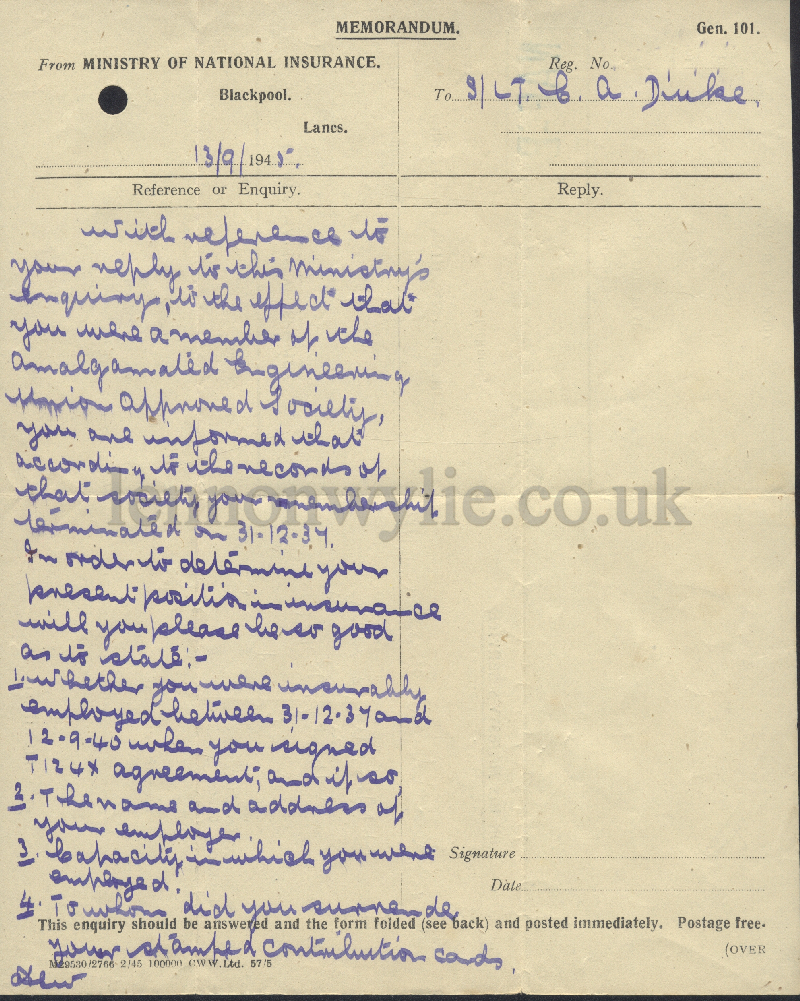 MEMORANDUM.
Gen. 101.
From MINISTRY OF NATIONAL INSURANCE.
Blackpool.
Lancs.
13/9/1945.
Reg. No.
To S/LT. C. A. Dinke,
Reference or Enquiry.
Reply.
With reference to
your reply to this Ministry's
enquiry, to the effect that
you were a member of the
Amalgamated Engineering
Union Approved Society,
you are informed that
according to the records of
that society your membership
terminated on 31-12-37.
In order to determine your
present position in insurance
will you please be so good
as to state:-
1. Whether you were insurably
employed between 31-12-37 and
12-9-40 when you signed
T124X agreement, and if so,
2. The name and address of
your employer.
3. Capacity in which you were
employed.
4. To whom did you surrender
your stamped contribution cards.
Signature
Date
This enquiry should be answered and the form folded (see back) and posted immediately. Postage free.
(OVER
M29530/2766 2/45 100000 C.W.W. Ltd. 57/5
lennonwylie.co.uk